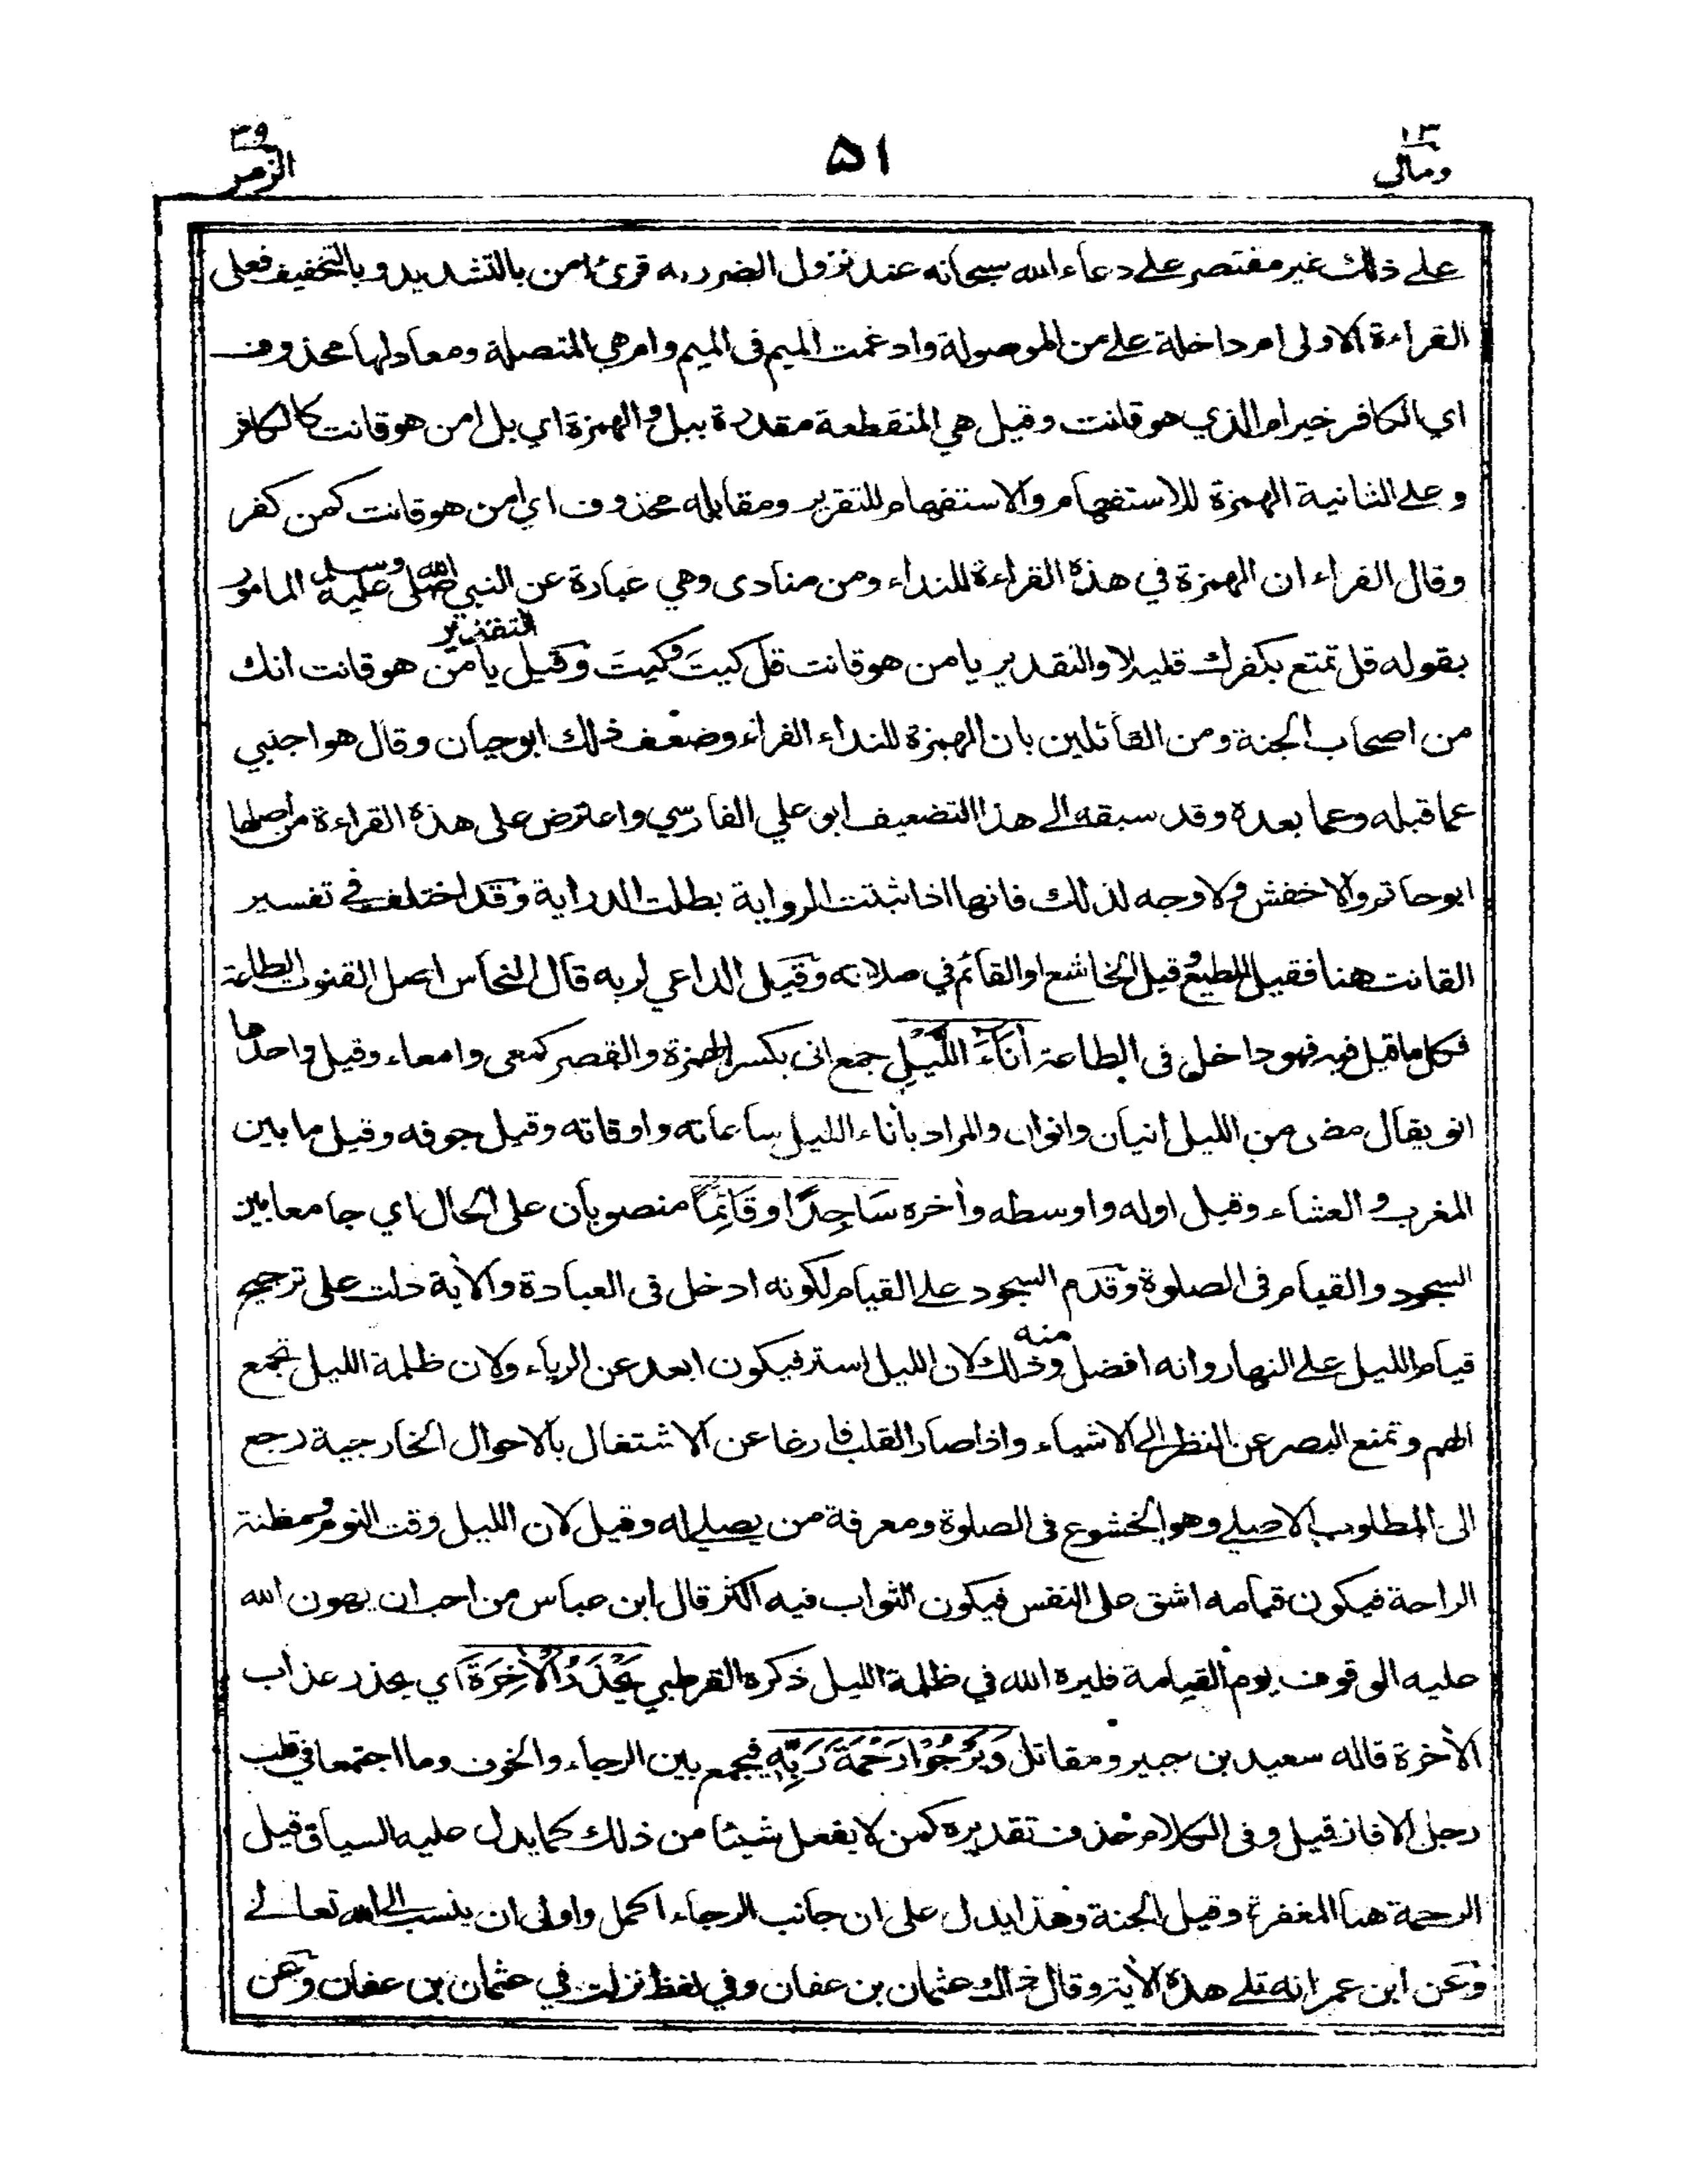 ١٣
ومالي
٥١
٣٩
الزمر
على ذلك غير مقتصر على دعاء الله سبحانه عند نزول الضرر به قرئ امن بالتشديد وبالتخفيف فعلى
القراءة الاولى ام داخلة على من الموصولة وادغمت الميم في الميم وام هي المتصلة ومعادلها محذوف
اي الكافر خير ام الذي هو قانت وقيل هي المنقطعة مقدرة ببل والهمزة اي بل امن هو قانت كالكافر
وعلى الثانية الهمزة للاستفهام والاستفهام للتقرير ومقابله محذوف اي امن هو قانت كمن كفر
وقال الفراء ان الهمزة في هذه القراءة للنداء ومن منادى وهي عبارة عن النبي صلى الله عليه وسلم المامور
بقوله قل تمتع بكفرك قليلا والتقدير يا من هو قانت قل كيت وكيت وقيل التقدير يا من هو قانت انك
من اصحاب الجنة ومن القائلين بان الهمزة للنداء الفراء وضعف ذلك ابو حيان وقال هو اجنبي
عما قبله وعما بعده وقد سبقه الى هذا التضعيف ابو علي الفارسي واعترض على هذه القراءة من اصلها
ابو حاتم والاخفش ولا وجه لذلك فانها اذا ثبتت الرواية بطلت الدراية وقد اختلف في تفسير
القانت هنا فقيل المطيع وقيل الخاشع او القائم في صلاته وقيل الداعي لربه قال النحاس اصل القنوت الطاعة
فكل ما قيل فيه فهو داخل في الطاعة أنَاءَ اللَّيْلِ جمع انى بكسر الهمزة والقصر كمعى وامعاء وقيل واحدها
انو يقال مضى من الليل انيان وانوان والمراد بأناء الليل ساعاته واوقاته وقيل جوفه وقيل ما بين
المغرب والعشاء وقيل اوله واوسطه وأخره سَاجِدًا وقَائِمًا منصوبان على الحال اي جامعا بين
السجود والقيام في الصلوة وقدم السجود على القيام لكونه ادخل في العبادة والأية دلت على ترجيح
قيام الليل على النهار وانه افضل منه وذلك لان الليل استر فيكون ابعد عن الرياء ولان ظلمة الليل تجمع
الهم وتمنع البصر عن النظر الى الاشياء واذا صار القلب فارغا عن الاشتغال بالاحوال الخارجية رجع
الى المطلوب الاصلي وهو الخشوع في الصلوة ومعرفة من يصلي له وقيل لان الليل وقت النوم ومظنة
الراحة فيكون قيامه اشق على النفس فيكون الثواب فيه اكثر قال ابن عباس من احب ان يهون الله
عليه الوقوف يوم القيامة فليره الله في ظلمة الليل ذكره القرطبي يَحْذَرُ الْأخِرَةَ اي يحذر عذاب
الأخرة قاله سعيد بن جبير ومقاتل وَيَرْجُوْا رَحْمَةَ رَبِّهِ فيجمع بين الرجاء والخوف وما اجتمعا في قلب
رجل الا فاز قيل وفي الكلام حذف تقديره كمن لا يفعل شيئا من ذلك كما يدل عليه السياق قيل
الرحمة هنا المغفرة وقيل الجنة وهذا يدل على ان جانب الرجاء اكمل واولى ان ينسب الى الله تعالى
وعن ابن عمر انه تلى هذه الأية وقال ذاك عثمان بن عفان وفي لفظ نزلت في عثمان بن عفان وعن